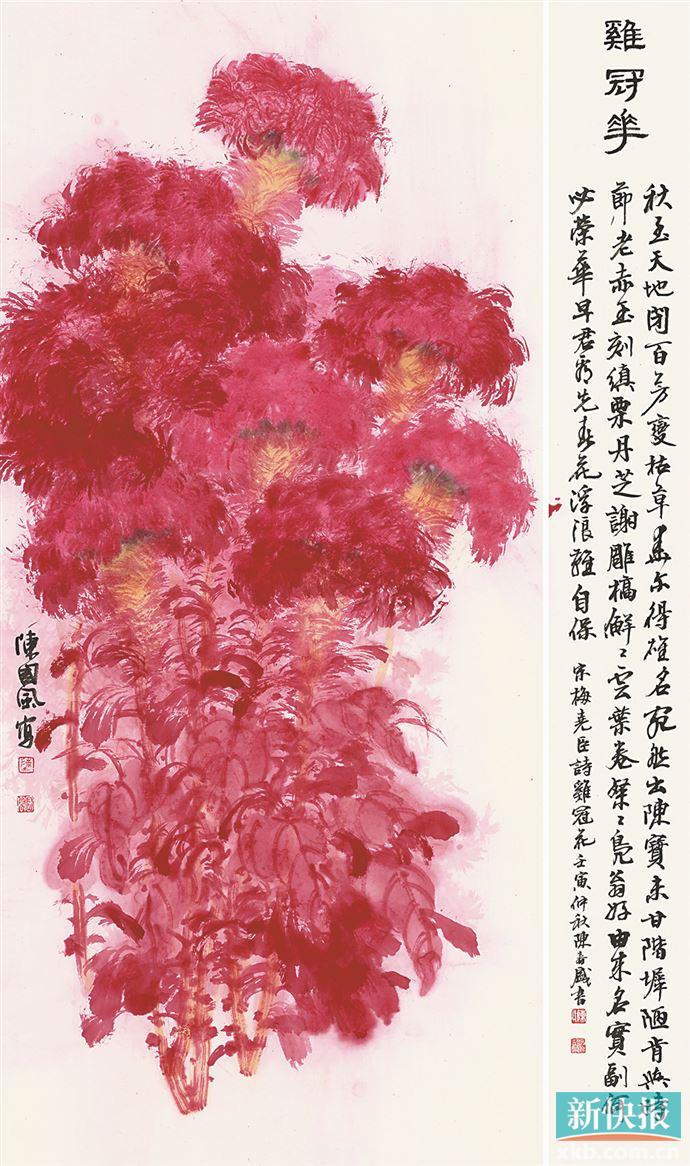 雞冠花
秋至天地閉百芳變枯草愛尔得雄名宛然出陳寶未甘階墀陋肯與時
節老赤玉刻縝栗丹芝謝雕槁鮮〻雲葉卷粲〻鳧翁好由來名實副何
必榮華早君看先春花浮浪難自保
宋梅堯臣詩雞冠花壬寅仲秋陳
書
陳國風寫
新快报
xkb.com.cn